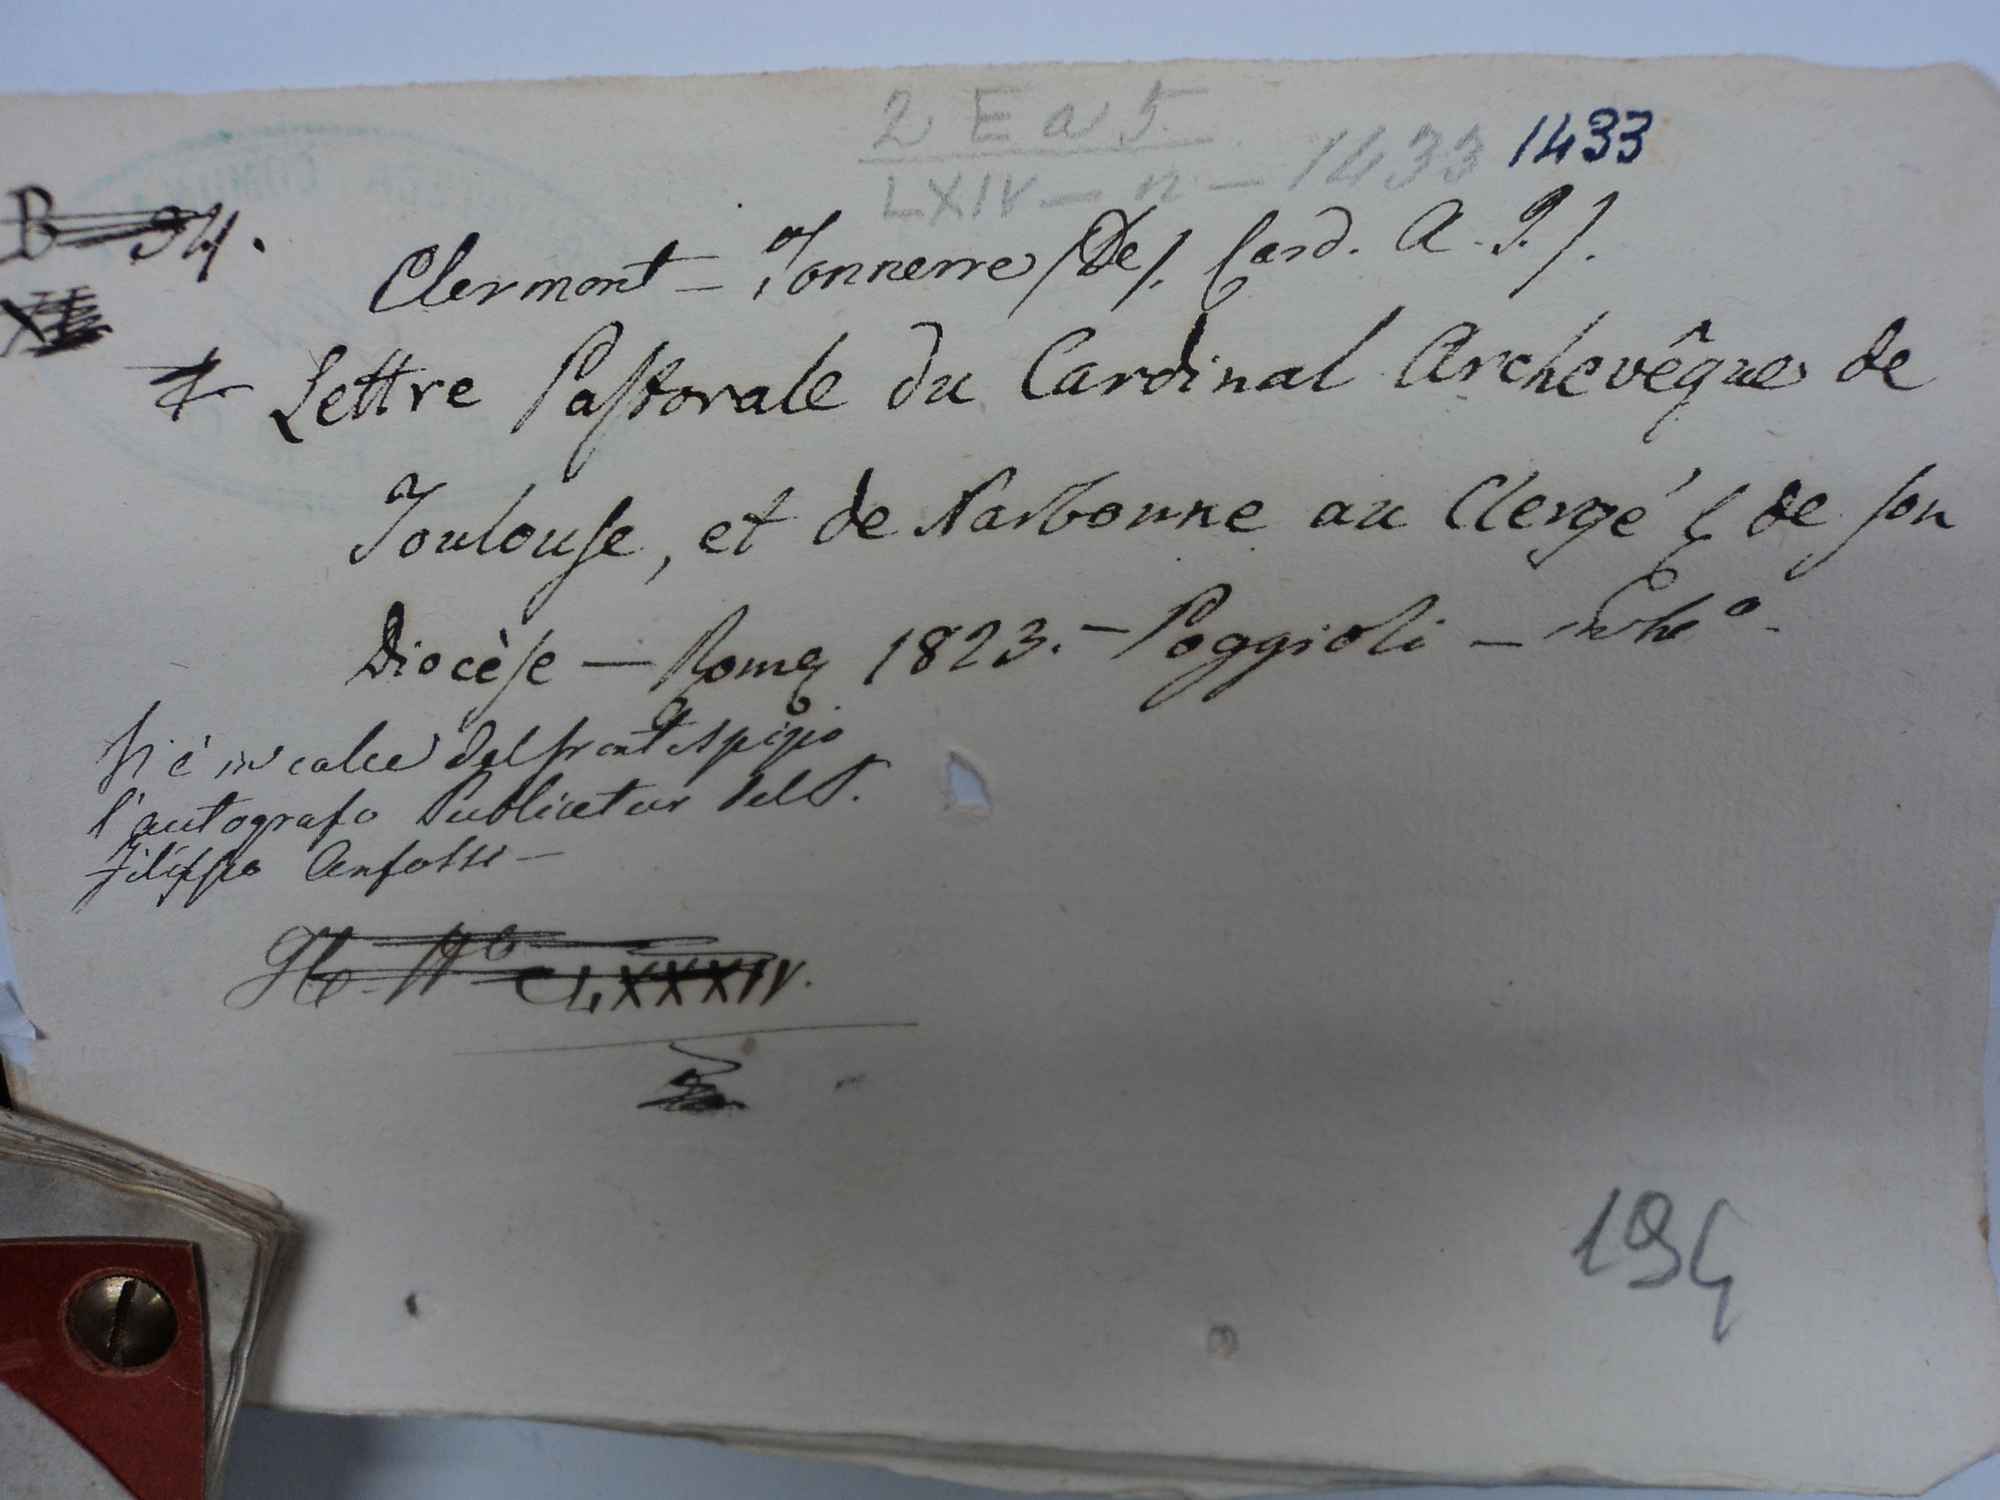 2 E a 5
LXIV - n - 1433 1433
B 94.
Clermont-Tonnerre (De). Card. A. P.).
Lettre Pastorale du Cardinal Archevêque de
Toulouse, et de Narbonne au Clergé & de son
Diocèse — Rome 1823. — Poggioli —
Vi è in calce del frontespizio
l'autografo Publicetur del P.
Filippo Anfossi —
CLXXXIV.
194